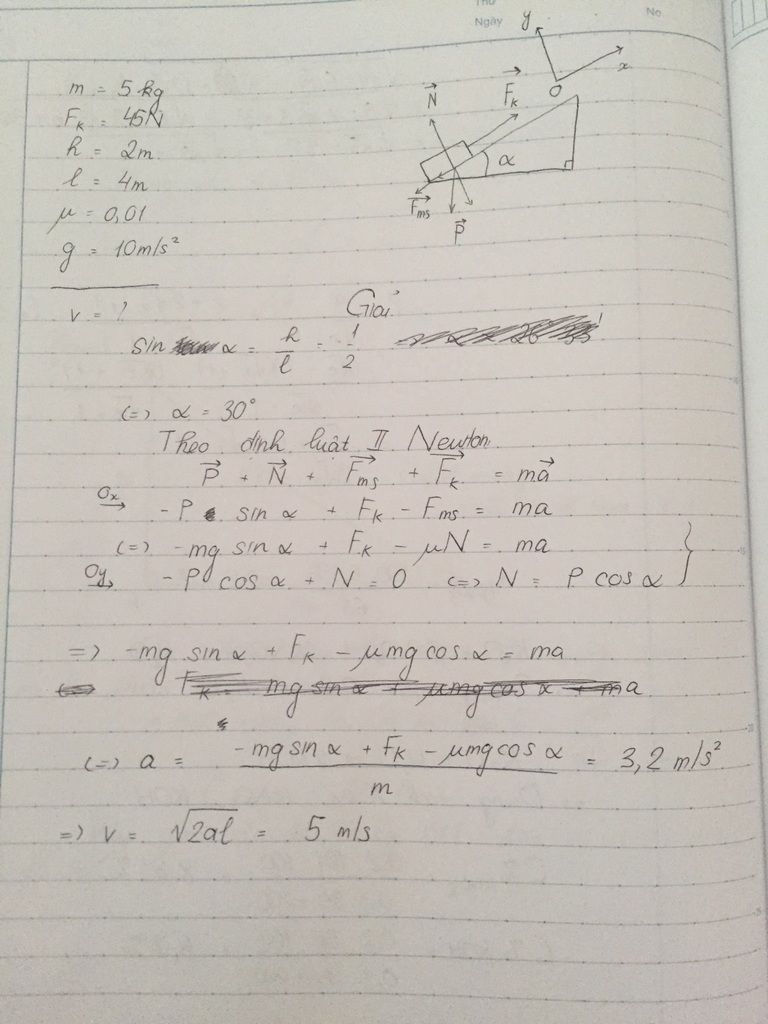 Thứ
Ngày
No
y
x
O
m = 5 kg
F_k = 45N
h = 2m
l = 4m
μ = 0,01
g = 10m/s²
N⃗
F⃗_k
α
F⃗_ms
P⃗
v = ?
Giải
sin α = h/l = 1/2
(=) α = 30°
Theo định luật II Newton
P⃗ + N⃗ + F⃗_ms + F⃗_k = ma⃗
Ox→ -P sin α + F_k - F_ms = ma
(=) -mg sin α + F_k - μN = ma
Oy→ -P cos α + N = 0 (=) N = P cos α }
=) -mg sin α + F_k - μmg cos α = ma
(=) a = (-mg sin α + F_k - μmg cos α)/m = 3,2 m/s²
=) v = √2al = 5 m/s